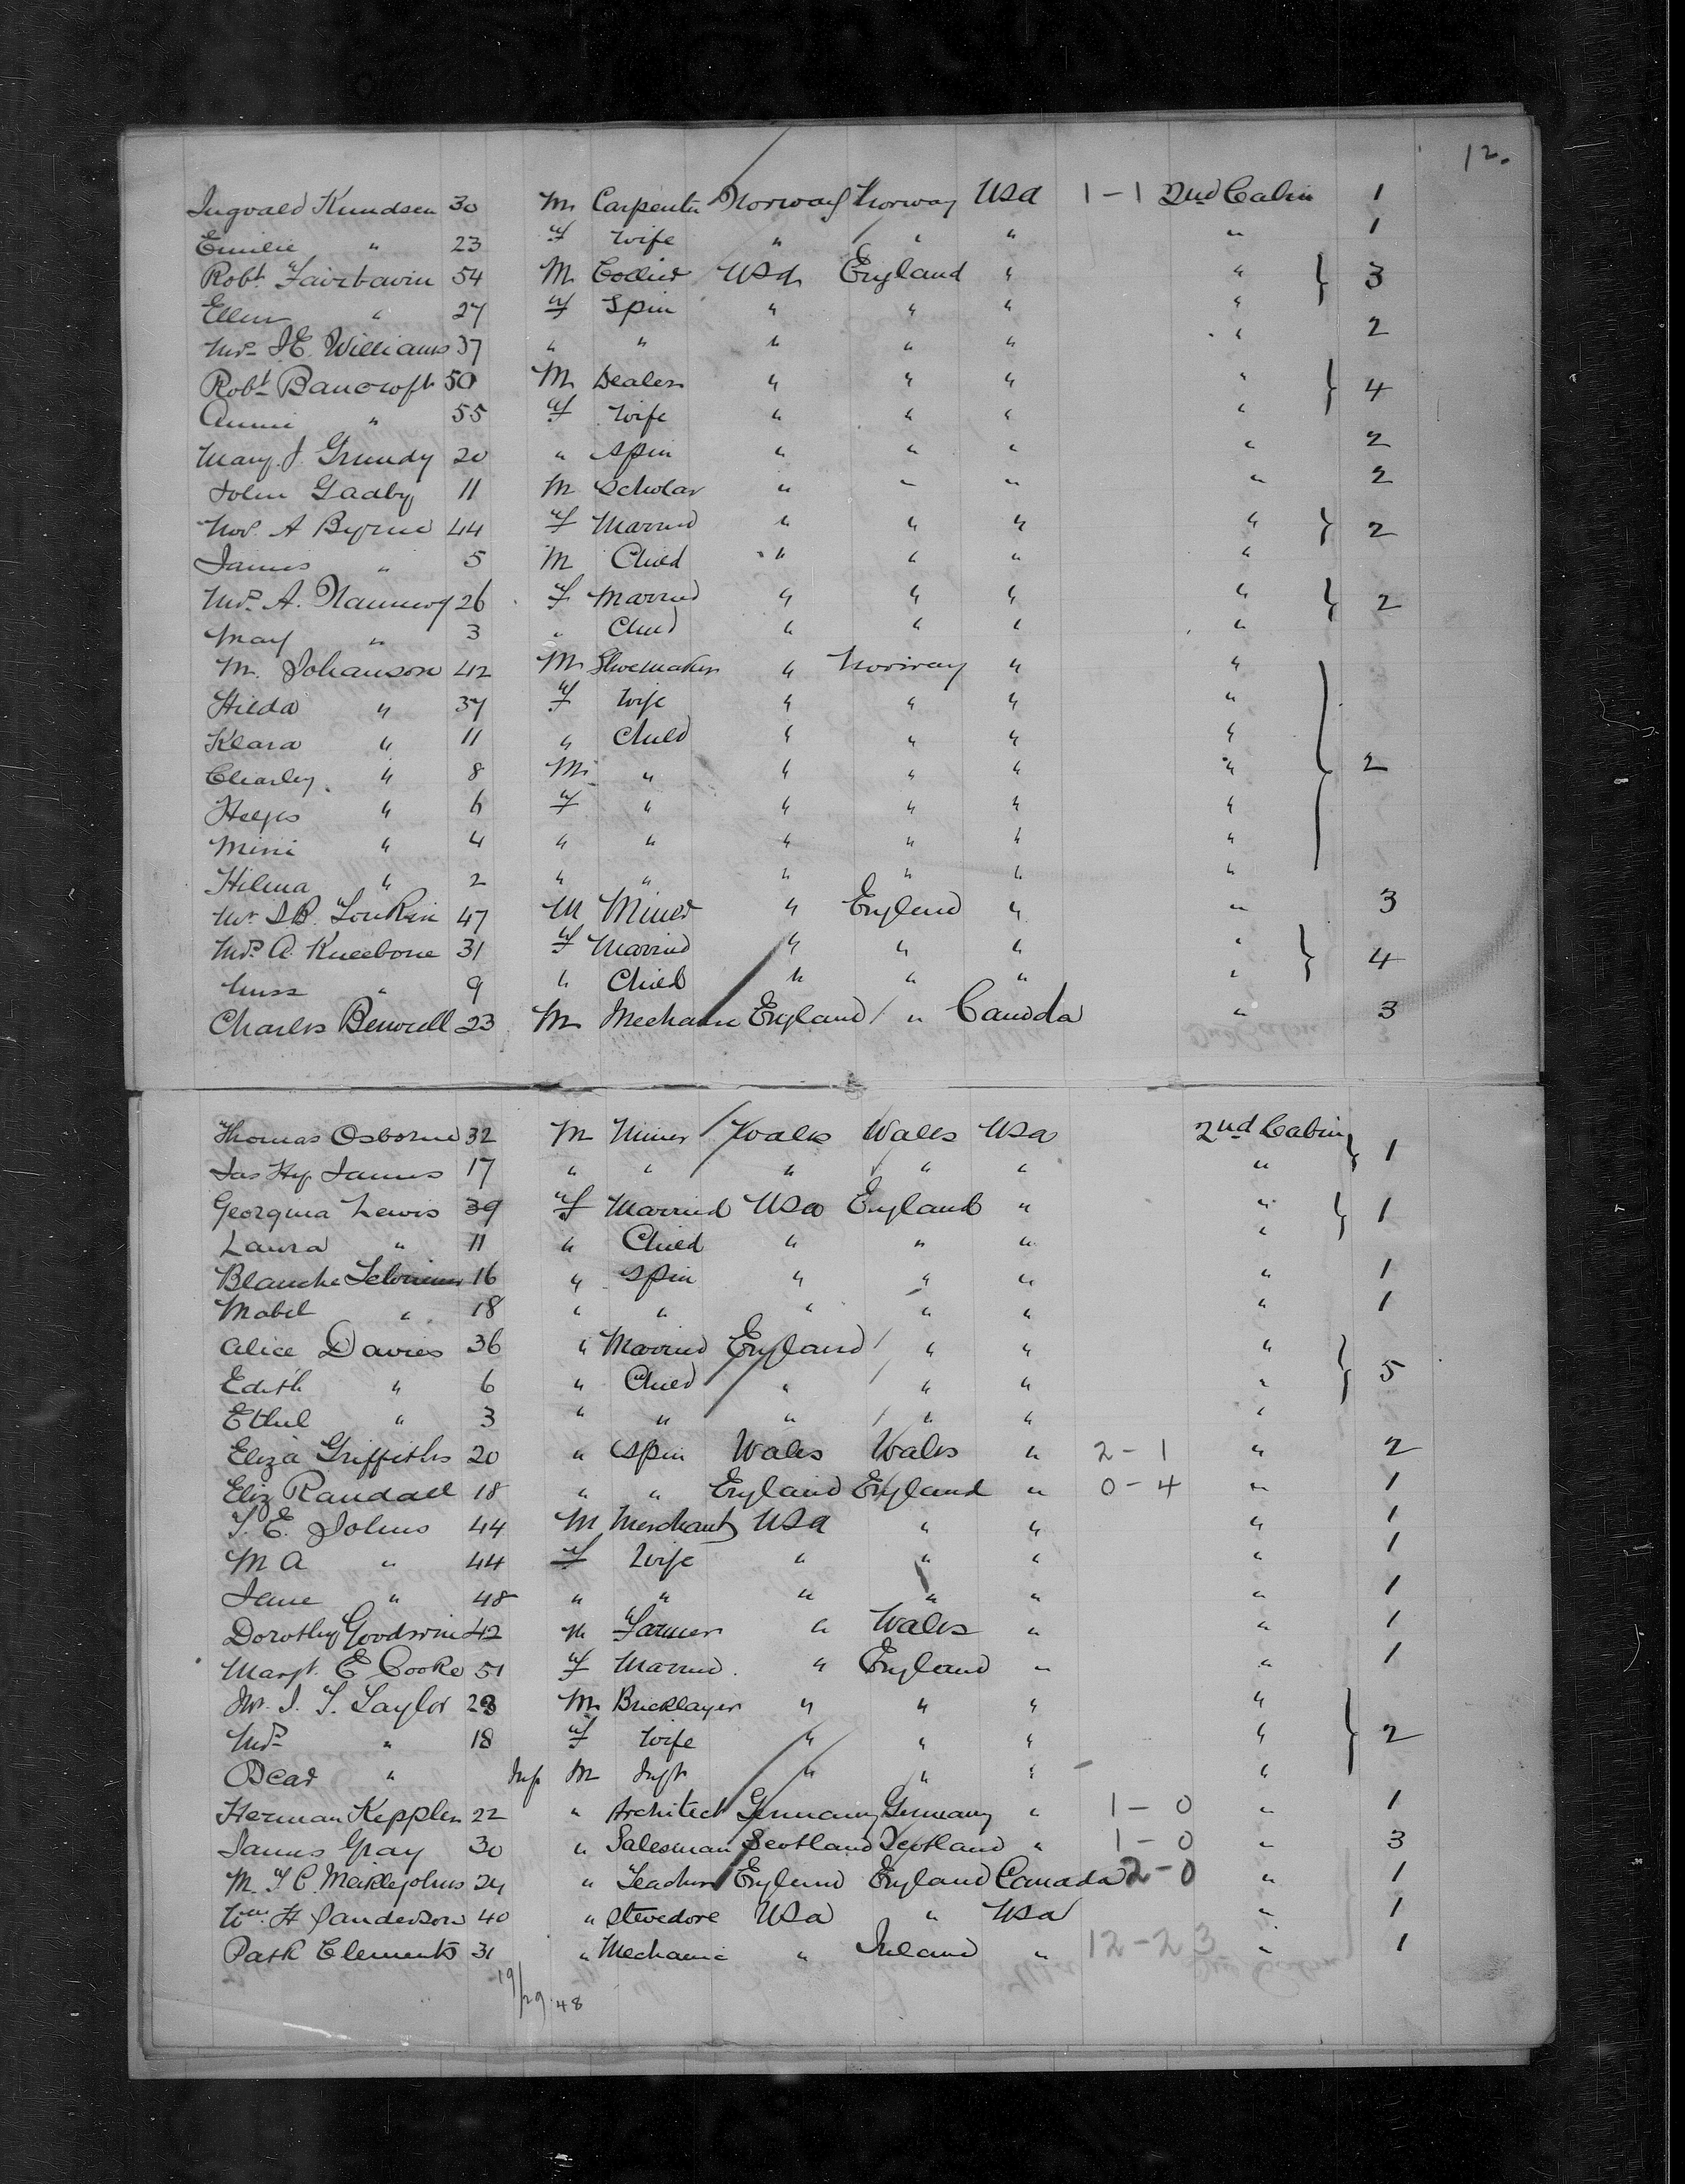 12.
Ingvald Knudsen 30 M Carpenter Norway Norway USA 1-1 2nd Cabin 1
Emilie " 23 F Wife " " " " 1
Robt Fairbairn 54 M Collier USA England " " 3
Ellen " 27 F Spin " " " "
Mrs J.E. Williams 37 " " " " " " 2
Robt Bancroft 50 M Dealer " " " " 4
Annie " 55 F Wife " " " "
Mary J Grundy 20 " Spin " " " " 2
John Gadby 11 M Scholar " " " " 2
Mrs A Byrne 44 F Married " " " " 2
James " 5 M Child " " " "
Mrs A. 26 F Married " " " " 2
May " 3 " Child " " " "
M. Johanson 42 M Shoemaker " Norway " "
Hilda " 37 F Wife " " " "
Klara " 11 " Child " " " "
Charley " 8 M " " " " " 2
" 6 F " " " " "
Mini " 4 " " " " " "
Hilma " 2 " " " " " "
Mr 47 M Miner " England " " 3
Mrs A. Kneebone 31 F Married " " " " 4
Miss " 9 " Child " " " "
Charles 23 M Mechanic England " Canada " 3
Thomas Osborne 32 M Miner Wales Wales USA 2nd Cabin 1
Jas Hy James 17 " " " " " "
Georgina Lewis 39 F Married USA England " " 1
Laura " 11 " Child " " " "
Blanche 16 " Spin " " " " 1
Mabel " 18 " " " " " " 1
Alice Davies 36 " Married England " " " 5
Edith " 6 " Child " " " "
Ethel " 3 " " " " " "
Eliza Griffiths 20 " Spin Wales Wales " 2-1 " 2
Eliz Randall 18 " " England England " 0-4 " 1
T. E. Johns 44 M Merchant USA " " " 1
M A " 44 F Wife " " " " 1
Jane " 48 " " " " " " 1
Dorothy Goodwin 42 M Farmer " Wales " " 1
Margt. E Cooke 51 F Married " England " " 1
Mr. J. T. Taylor 23 M Bricklayer " " " "
Mrs " 18 F Wife " " " " 2
" Inf M Inft " " " "
Herman Kepplen 22 " Architect Germany Germany " 1-0 " 1
James Gray 30 " Salesman Scotland Scotland " 1-0 " 3
M. T C. Meiklejohns 24 " Teacher England England Canada 2-0 " 1
Wm. H Sanderson 40 " Stevedore USA " USA " 1
Patk Clements 31 " Mechanic " Ireland " 12-23 " 1
19/29.48